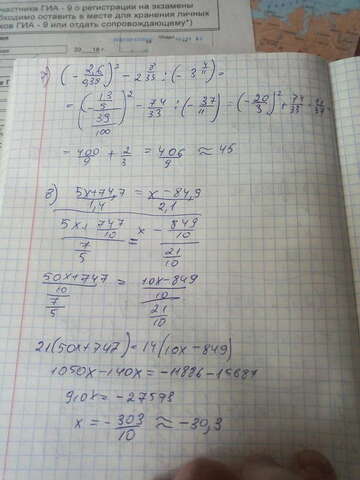 частника ГИА - 9 о регистрации на экзамены
ходимо оставить в месте для хранения личных
ков ГИА - 9 или отдать сопровождающему*)
7) (- 2,6/0,39)² - 2 8/33 : (- 3 4/11) =
= (- 13/5 / 39/100)² - 74/33 : (- 37/11) = (- 20/3)² + 74/33 ·
- 400/9 + 2/3 = 406/9 ≈ 45
8) 5x+74,7/1,4 = x-84,9/2,1
5x+ 747/10 / 7/5 = x - 849/10 / 21/10
50x+747/10 / 7/5 = 10x-849/10 / 21/10
21(50x+747) = 14(10x-849)
1050x-140x = -11886-15687
910x = -27573
x = - 303/10 ≈ -30,3